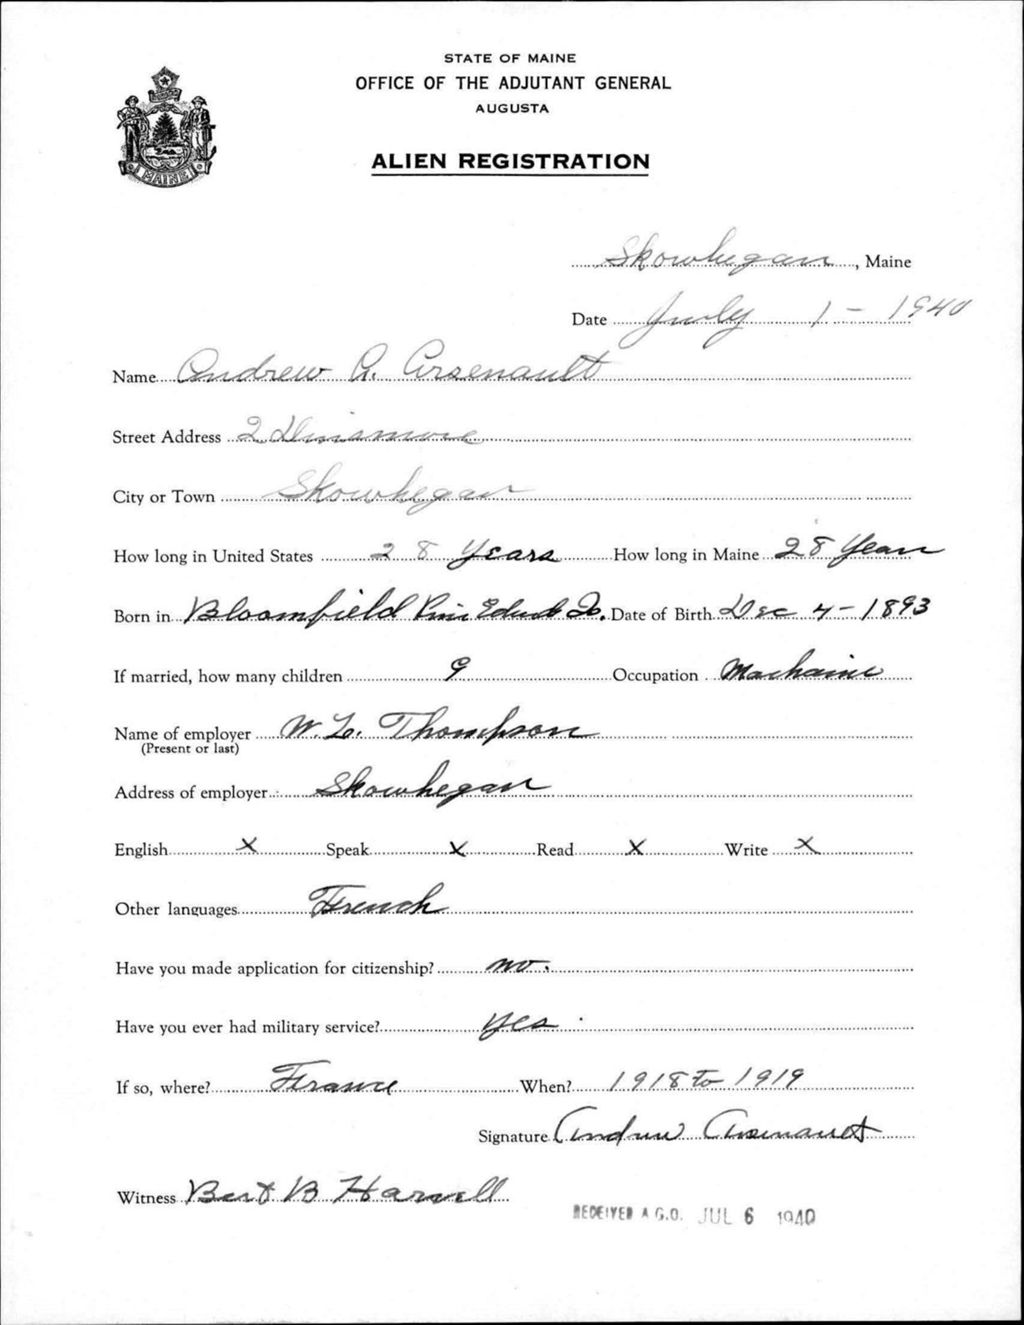 STATE OF MAINE
OFFICE OF THE ADJUTANT GENERAL
AUGUSTA
ALIEN REGISTRATION
MAINE
Skowhegan, Maine
Date July 1 - 1940
Name Andrew A. Arsenault
Street Address 2 Dinsmore
City or Town Skowhegan
How long in United States 28 Years How long in Maine 28 Years
Born in Bloomfield Date of Birth Dec 4 - 1893
If married, how many children 9 Occupation Machanic
Name of employer W. L. Thompson
(Present or last)
Address of employer Skowhegan
English X Speak X Read X Write X
Other languages French
Have you made application for citizenship? no.
Have you ever had military service? yes.
If so, where? France When? 1918 to 1919
Signature Andrew Arsenault
Witness Bert B Harvell
RECEIVED A.G.O. JUL 6 1940